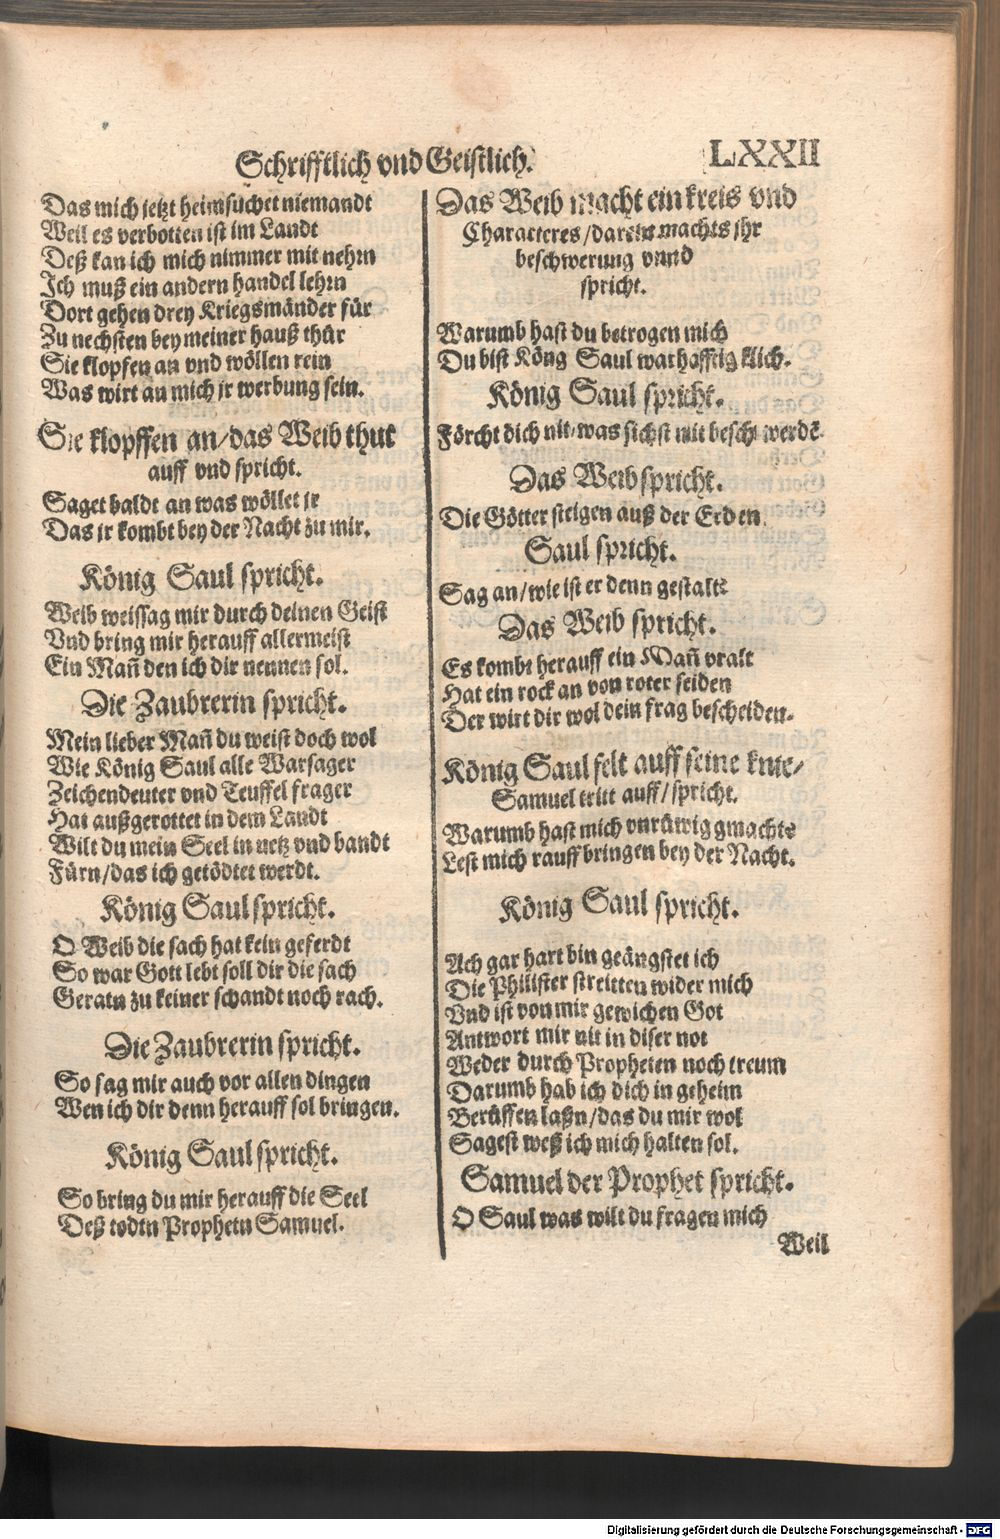 Schrifftlich vnd Geistlich.
LXXII
Das mich jetzt heimsüchet niemandt
Weil es verbotten ist im Landt
Deß kan ich mich nimmer mit nehrn
Ich muß ein andern handel lehrn
Dort gehen drey Kriegsmänder für
Zu nechsten bey meiner hauß thür
Sie klopfen an vnd wöllen rein
Was wirt an mich jr werbung sein.
Sie klopffen an/das Weib thut
auff vnd spricht.
Saget baldt an was wöllet jr
Das jr kombt bey der Nacht zu mir.
König Saul spricht.
Weib weissag mir durch deinen Geist
Vnd bring mir herauff allermeist
Ein Mañ den ich dir nennen sol.
Die Zaubrerin spricht.
Mein lieber Mañ du weist doch wol
Wie König Saul alle Warsager
Zeichendeuter vnd Teuffel frager
Hat außgerottet in dem Landt
Wilt du mein Seel in netz vnd bandt
Fürn/das ich getödtet werdt.
König Saul spricht.
O Weib die sach hat kein geferdt
So war Gott lebt soll dir die sach
Geratn zu keiner schandt noch rach.
Die Zaubrerin spricht.
So sag mir auch vor allen dingen
Wen ich dir denn herauff sol bringen.
König Saul spricht.
So bring du mir herauff die Seel
Deß todtn Prophetn Samuel.
Das Weib macht ein kreis vnd
Characteres/darein machts jhr
beschwerung vnnd
spricht.
Warumb hast du betrogen mich
Du bist Köng Saul warhafftig klich.
König Saul spricht.
Förcht dich nit/was sichst mit beschwerdẽ
Das Weib spricht.
Die Götter steigen auß der Erden.
Saul spricht.
Sag an/wie ist er denn gestalt?
Das Weib spricht.
Es kombt herauff ein Mañ vralt
Hat ein rock an von roter seiden
Der wirt dir wol dein frag bescheiden.
König Saul felt auff seine knie/
Samuel tritt auff/spricht.
Warumb hast mich vnrüwig gmacht?
Lest mich rauff bringen bey der Nacht.
König Saul spricht.
Ach gar hart bin geängstet ich
Die Philister streitten wider mich
Vnd ist von mir gewichen Got
Antwort mir nit in diser not
Weder durch Propheten noch treum
Darumb hab ich dich in geheim
Berüffen laßn/das du mir wol
Sagest weß ich mich halten sol.
Samuel der Prophet spricht.
O Saul was wilt du fragen mich
Weil
Digitalisierung gefördert durch die Deutsche Forschungsgemeinschaft - DFG